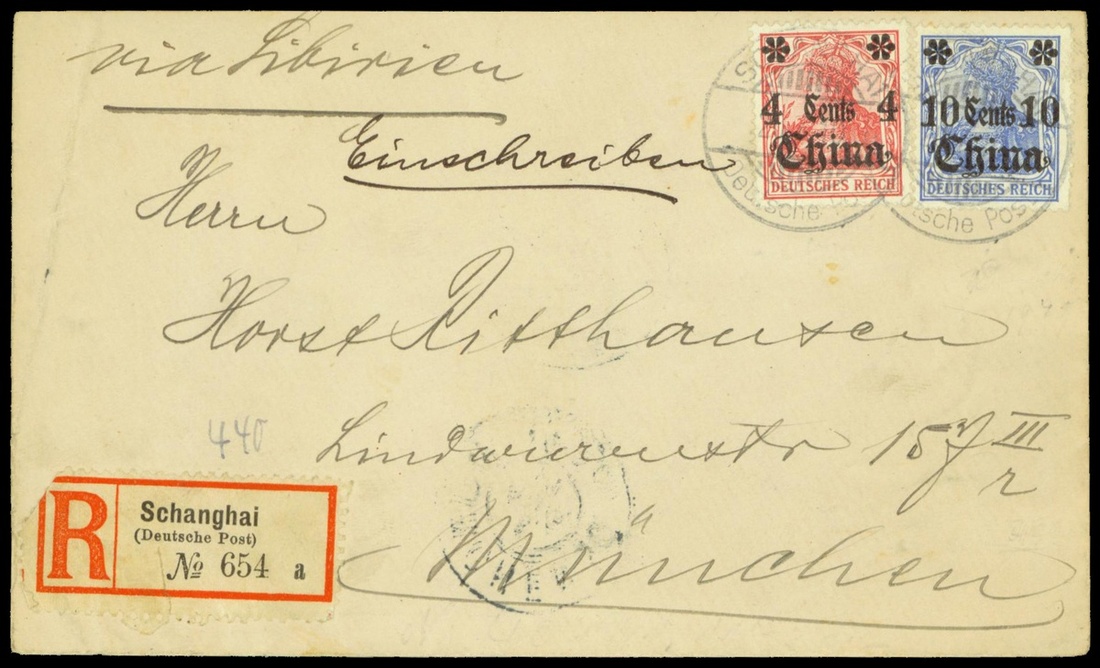 via Sibirien
Einschreiben
4 Cents 4
China
DEUTSCHES REICH
10 Cents 10
China
DEUTSCHES REICH
Deutsche Po
utsche Post
Herrn
Horst Ritthausen
440
Lindwurmstr 157 III
r
München
R
Schanghai
(Deutsche Post)
№ 654 a